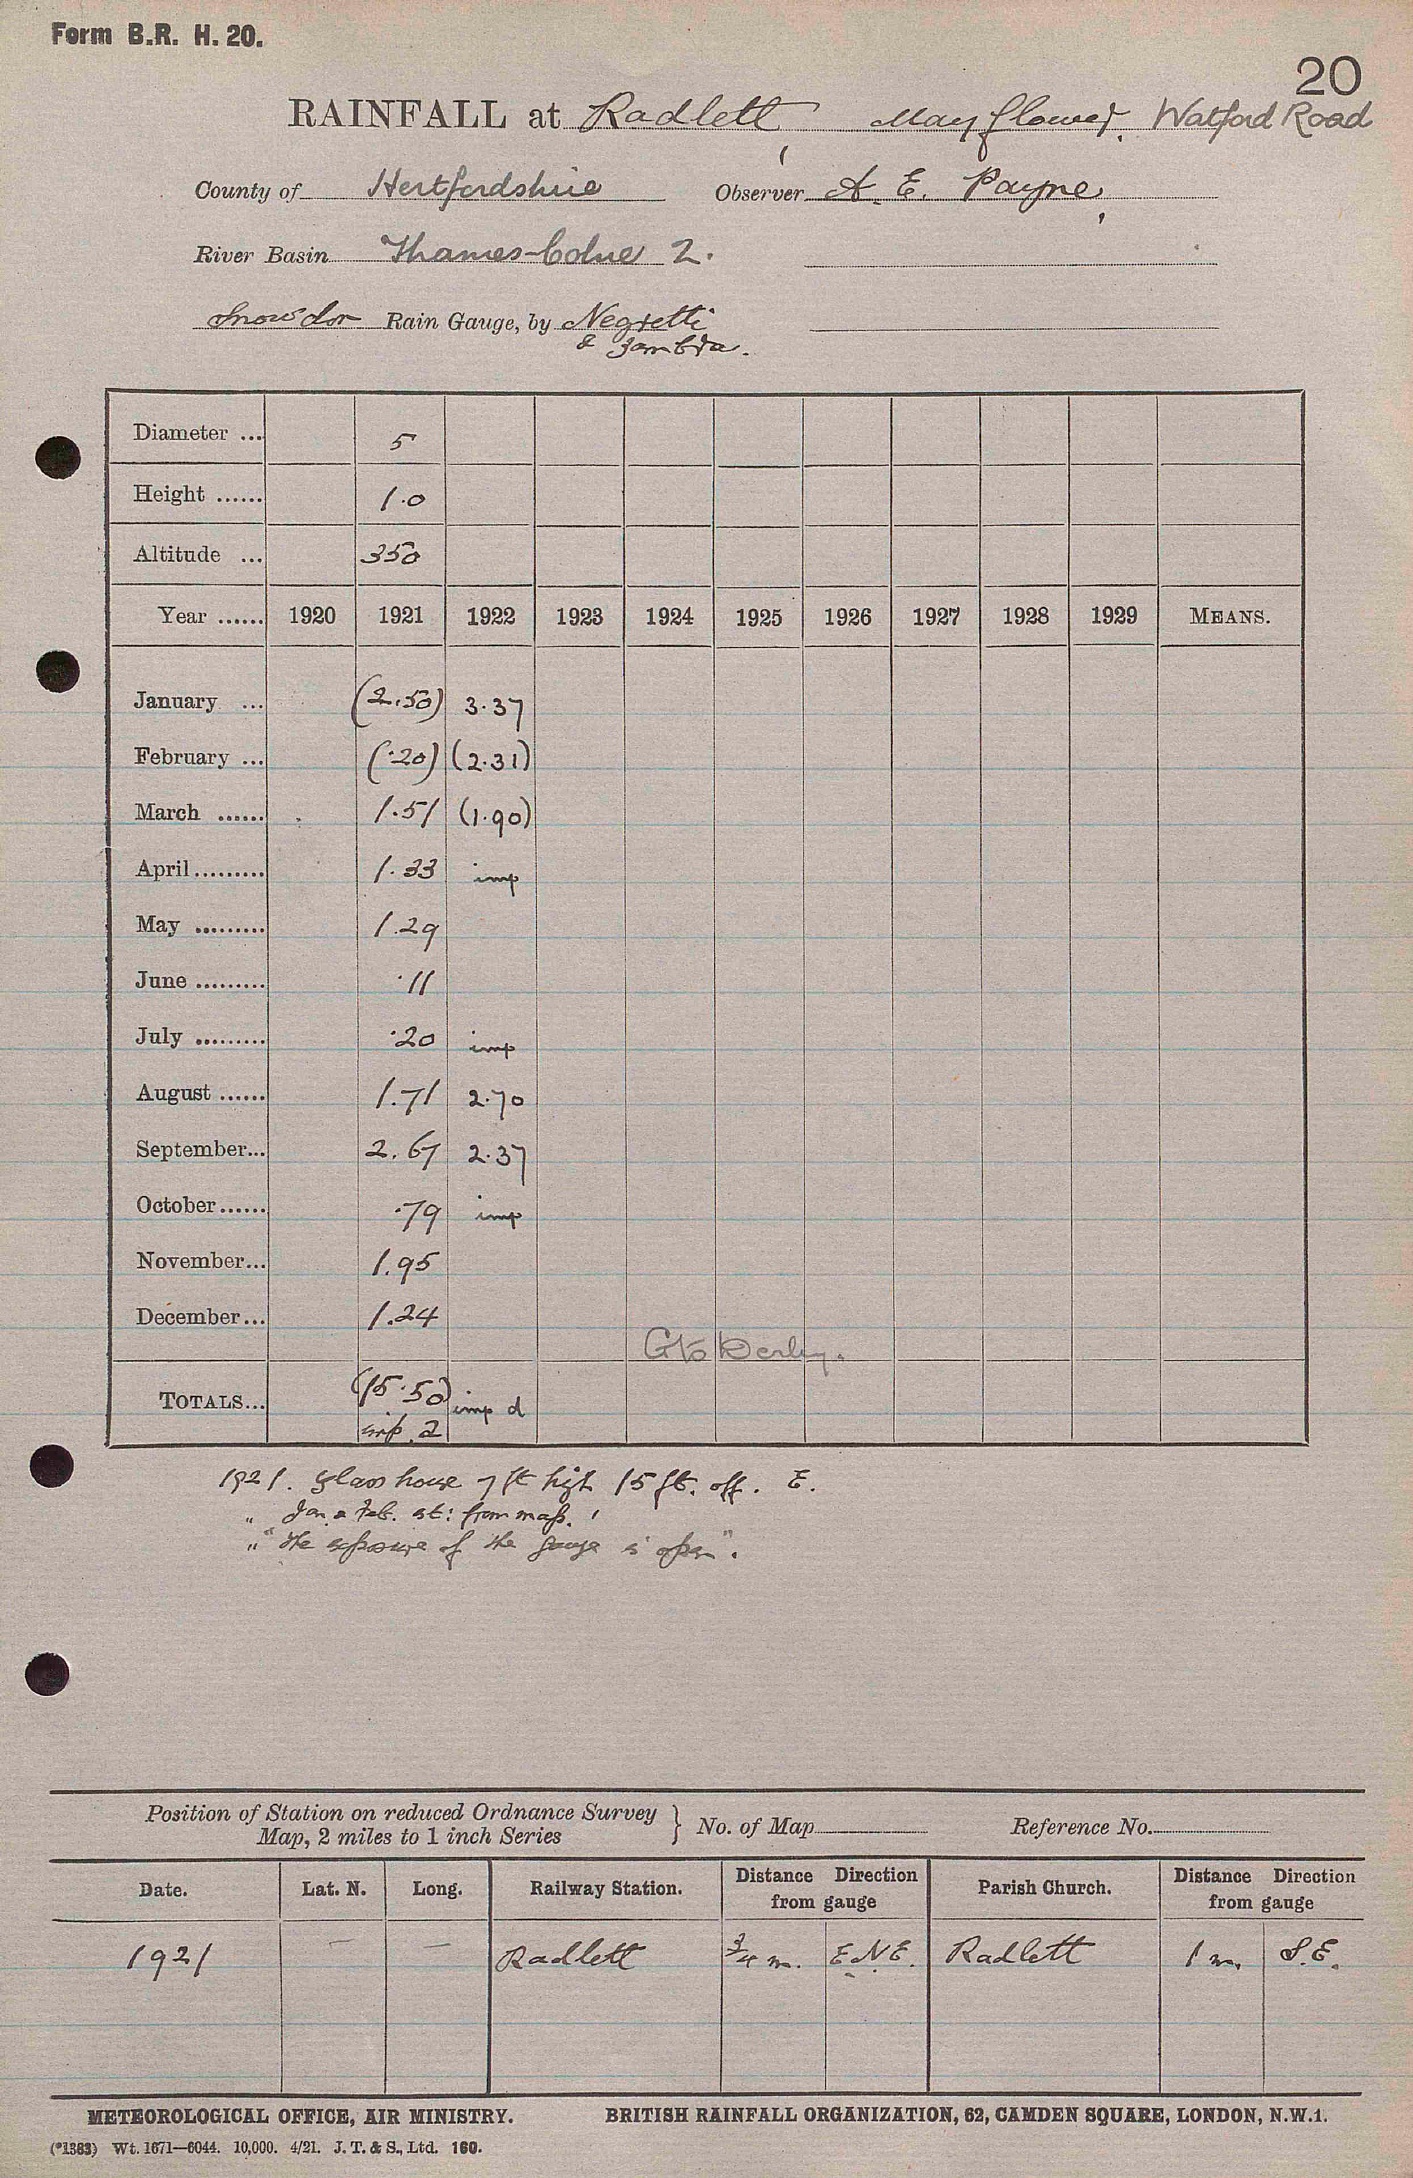 Form B.R. H. 20.
20
RAINFALL at Radlett, Mayflower, Watford Road
County of Hertfordshire Observer A. E. Payne,
River Basin Thames-Colne 2.
Snowdon Rain Gauge, by Negretti
& Zambra.
Diameter ... 5
Height ...... 1.0
Altitude ... 350
Year ...... 1920 1921 1922 1923 1924 1925 1926 1927 1928 1929 MEANS.
January ... (2.50) 3.37
February ... (.20) (2.31)
March ...... 1.51 (1.90)
April......... 1.33 imp
May ......... 1.29
June ......... .11
July ......... .20 imp
August ...... 1.71 2.70
September... 2.67 2.37
October...... .79 imp
November... 1.95
December... 1.24
G to Derby.
TOTALS... (15.50) imp d
imp. 2
1921. Glass house 7 ft high 15 ft. off. E.
" Jan & Feb. st: from maps.
" "The exposure of the gauge is open".
Position of Station on reduced Ordnance Survey
Map, 2 miles to 1 inch Series } No. of Map Reference No.
Date. Lat. N. Long. Railway Station. Distance Direction from gauge Parish Church. Distance Direction from gauge
1921 — — Radlett 3/4 m. E.N.E. Radlett 1 m. S.E.
METEOROLOGICAL OFFICE, AIR MINISTRY. BRITISH RAINFALL ORGANIZATION, 62, CAMDEN SQUARE, LONDON, N.W.1.
(*1383) Wt. 1671—6044. 10,000. 4/21. J. T. & S., Ltd. 160.